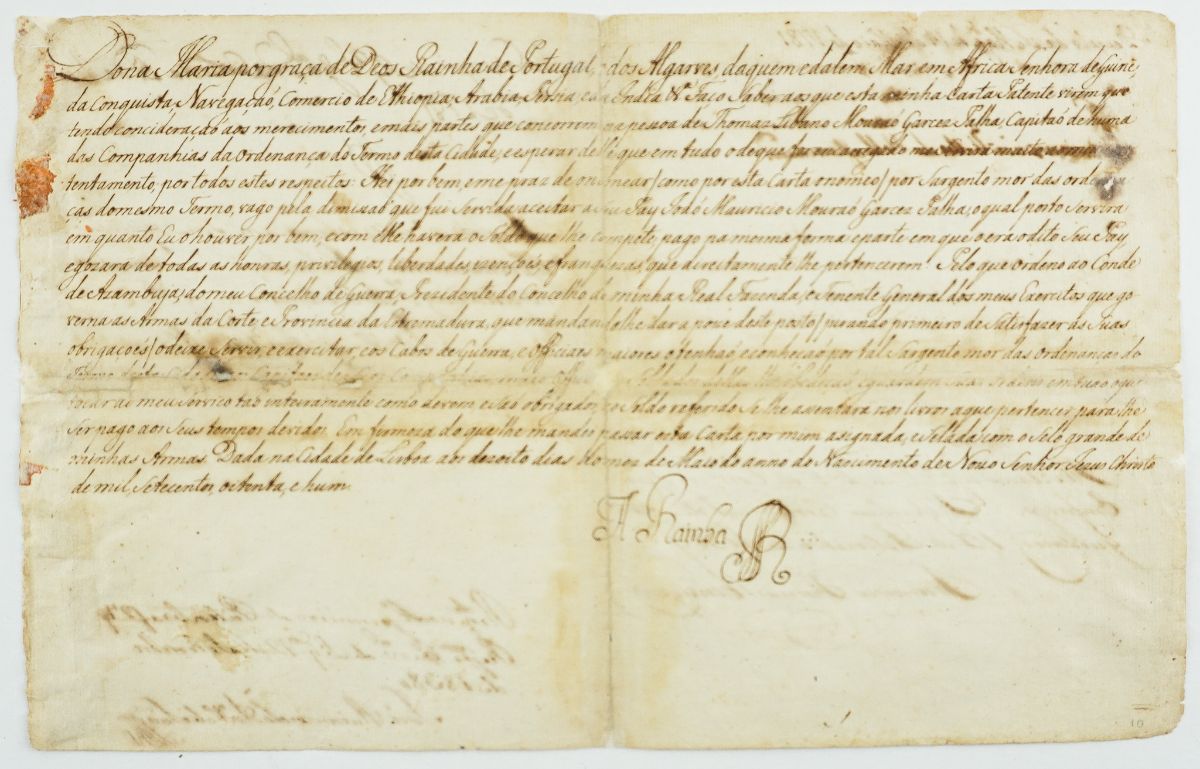 Dona Maria por graça de Deos Rainha de Portugal, e dos Algarves daquem e dalem Mar em Africa Senhora de Guiné,
da Conquista, Navegaçaõ, Comercio de Ethiopia, Arabia, Persia, e da India &ª Faço saber aos que esta minha Carta Patente virem que
tendo concideraçaõ aos merecimentos, e mais partes que concorrem na pessoa de Thomaz Mouraõ Garcez Palha, Capitaõ de huma
das Companhias da Ordenança do Termo desta Cidade, e esperar delle que em tudo o de que for encarregado me servirá muito a meu con
tentamento, por todos estes respeitos: Hei por bem, e me praz de o nomear / como por esta Carta o nomeo / por Sargento mor das ordenan
ças do mesmo Termo, vago pela dimissaõ que fui servida aceitar a seu Pay Joaõ Mauricio Mouraõ Garcez Palha, o qual posto servirá
em quanto Eu o houver por bem, e com elle haverá o Soldo que lhe competir, pago na mesma forma e parte em que o era o dito Seu Pay
e gozará de todas as honras, privilegios, liberdades, izençoẽs, e franquezas, que directamente lhe pertencerem. Pelo que ordeno ao Conde
de Azambuja, do meu Concelho de Guerra, Prezidente do Concelho da minha Real Fazenda, e Tenente General dos meus Exercitos que go
verna as Armas da Corte, e Provincia da Estremadura, que mandando-lhe dar a posse deste posto / jurando primeiro de satisfazer ás Suas
obrigaçoẽs / o deixe servir e exercitar, e os Cabos de Guerra, e Officiaes maiores o tenhaõ, e conheçaõ por tal Sargento mor das Ordenanças do
Termo desta Cidade
tocar ao meu Serviço taõ inteiramente como devem e saõ obrigados, e o Soldo referido se lhe assentará nos livros a que pertencer, para lhe
ser pago aos Seus tempos devidos. Em firmeza do que lhe mandei passar esta Carta por mim asignada, e Sellada com o Selo grande de
minhas Armas. Dada na Cidade de Lisboa aos dezoito dias do mez de Maio do anno do Nascimento de Nosso Senhor Jezus Christo
de mil, Setecentos, octenta, e hum.
A Rainha
10